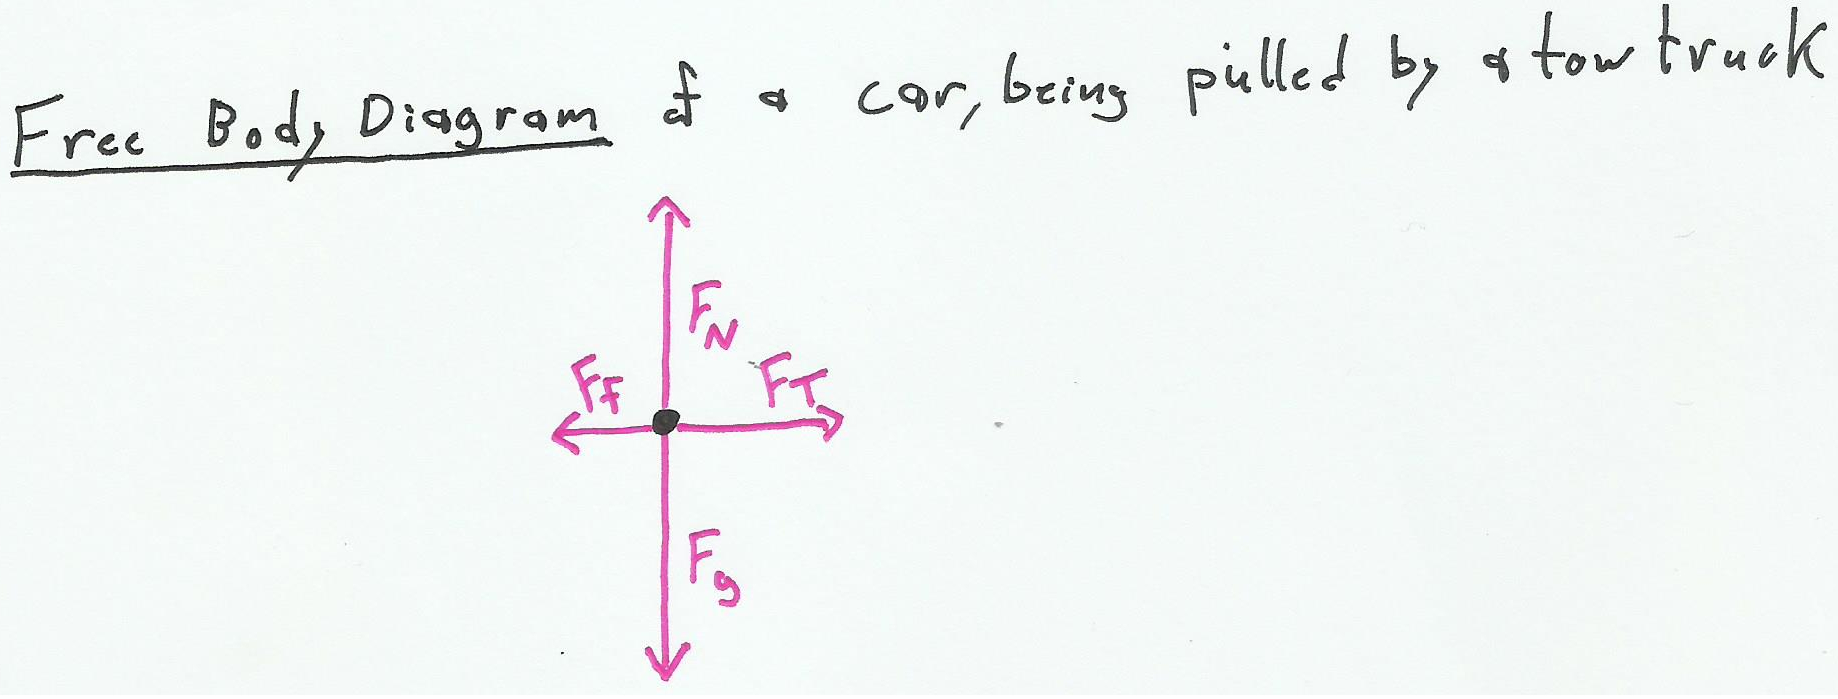 Free Body Diagram of a car, being pulled by a tow truck
F_N
F_f F_T
F_g